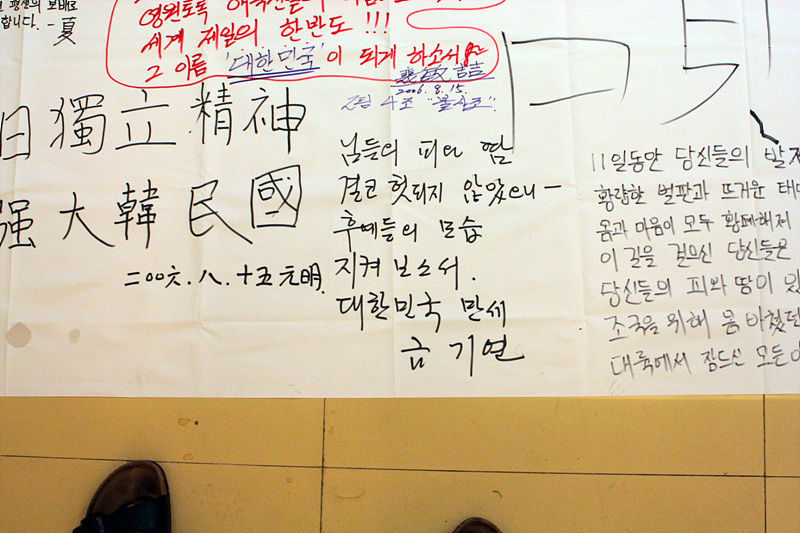 평생의 보배로
합니다. - 夏
영원토록
세계 제일의 한반도 !!!
그 이름 '대한민국'이 되게 하소서
2006. 8. 15.
2팀 4조
日 獨立精神
强大韓民國
二00六.八.十五 元明
님들의 피와 땀
결코 헛되지 않았으니 -
후예들의 모습
지켜 보소서.
대한민국 만세
금기연
11일동안 당신들의 발자
황량한 벌판과 뜨거운 태
몸과 마음이 모두 황폐해져
이 길을 걸으신 당신들은
당신들의 피와 땀이 있
조국을 위해 몸 바쳤던
대륙에서 잠드신 모든